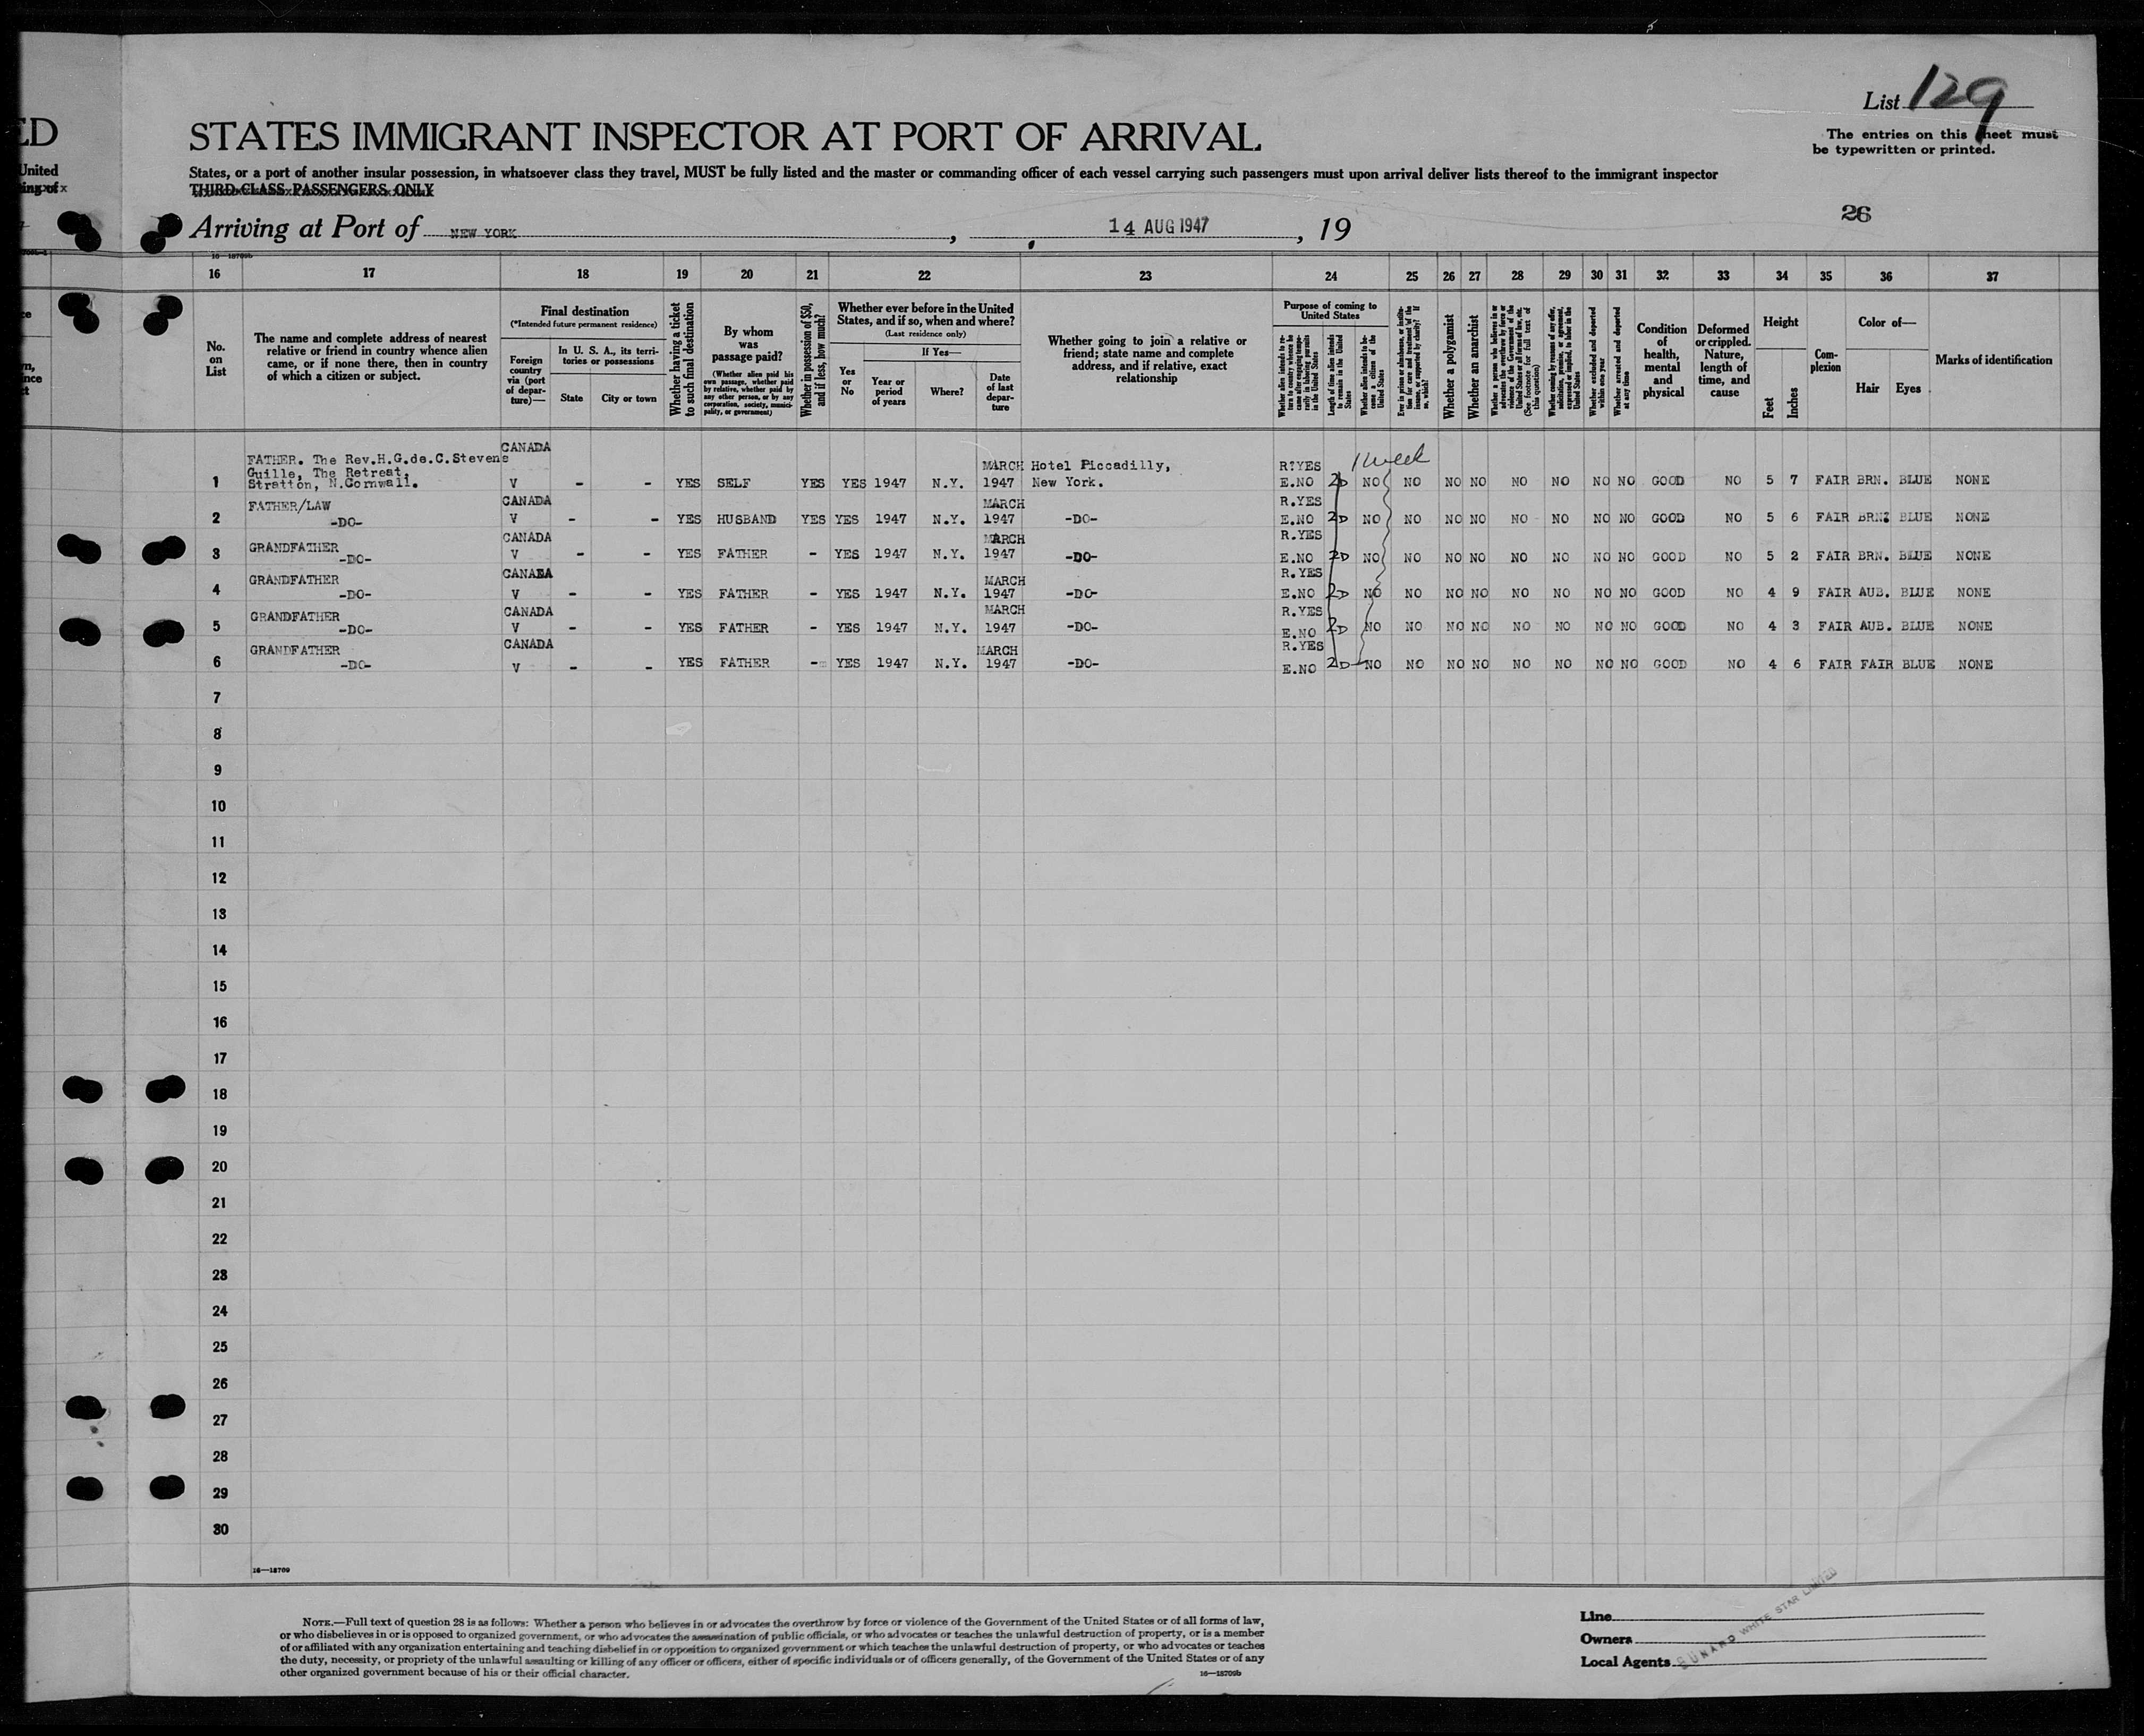 List 129
The entries on this sheet must
be typewritten or printed.
ED
STATES IMMIGRANT INSPECTOR AT PORT OF ARRIVAL
United
States, or a port of another insular possession, in whatsoever class they travel, MUST be fully listed and the master or commanding officer of each vessel carrying such passengers must upon arrival deliver lists thereof to the immigrant inspector
THIRD-CLASS PASSENGERS ONLY
26
Arriving at Port of NEW YORK, 14 AUG 1947, 19
16 17 18 19 20 21 22 23 24 25 26 27 28 29 30 31 32 33 34 35 36 37
No. on List
The name and complete address of nearest
relative or friend in country whence alien
came, or if none there, then in country
of which a citizen or subject.
Final destination
(*Intended future permanent residence)
Foreign country via (port of departure)—
In U. S. A., its territories or possessions
State
City or town
Whether having a ticket to such final destination
By whom was passage paid?
(Whether alien paid his own passage, whether paid by relative, whether paid by any other person, or by any corporation, society, municipality, or government)
Whether in possession of $50, and if less, how much?
Whether ever before in the United
States, and if so, when and where?
(Last residence only)
Yes or No
If Yes—
Year or period of years
Where?
Date of last departure
Whether going to join a relative or
friend; state name and complete
address, and if relative, exact
relationship
Purpose of coming to
United States
Whether alien intends to return to country whence he came after engaging temporarily in laboring pursuits in the United States
Length of time alien intends to remain in the United States
Whether alien intends to become a citizen of the United States
Ever in prison or almshouse, or institution for care and treatment of the insane, or supported by charity? If so, which?
Whether a polygamist
Whether an anarchist
Whether a person who believes in or advocates the overthrow by force or violence of the Government of the United States or all forms of law, etc. (See footnote for full text of this question)
Whether coming by reason of any offer, solicitation, promise, or agreement, expressed or implied, to labor in the United States
Whether excluded and deported within one year
Whether arrested and deported at any time
Condition of health, mental and physical
Deformed or crippled. Nature, length of time, and cause
Height
Feet
Inches
Complexion
Color of—
Hair
Eyes
Marks of identification
1 week
1 FATHER. The Rev.H.G.de.C.Stevens
Guille, The Retreat,
Stratton, N.Cornwall. CANADA V - - YES SELF YES YES 1947 N.Y. MARCH 1947 Hotel Piccadilly, New York. R.YES E.NO 2D NO NO NO NO NO NO NO NO GOOD NO 5 7 FAIR BRN. BLUE NONE
2 FATHER/LAW -DO- CANADA V - - YES HUSBAND YES YES 1947 N.Y. MARCH 1947 -DO- R.YES E.NO 2D NO NO NO NO NO NO NO NO GOOD NO 5 6 FAIR BRN. BLUE NONE
3 GRANDFATHER -DO- CANADA V - - YES FATHER - YES 1947 N.Y. MARCH 1947 -DO- R.YES E.NO 2D NO NO NO NO NO NO NO NO GOOD NO 5 2 FAIR BRN. BLUE NONE
4 GRANDFATHER -DO- CANADA V - - YES FATHER - YES 1947 N.Y. MARCH 1947 -DO- R.YES E.NO 2D NO NO NO NO NO NO NO NO GOOD NO 4 9 FAIR AUB. BLUE NONE
5 GRANDFATHER -DO- CANADA V - - YES FATHER - YES 1947 N.Y. MARCH 1947 -DO- R.YES E.NO 2D NO NO NO NO NO NO NO NO GOOD NO 4 3 FAIR AUB. BLUE NONE
6 GRANDFATHER -DO- CANADA V - - YES FATHER - YES 1947 N.Y. MARCH 1947 -DO- R.YES E.NO 2D NO NO NO NO NO NO NO NO GOOD NO 4 6 FAIR FAIR BLUE NONE
7
8
9
10
11
12
13
14
15
16
17
18
19
20
21
22
23
24
25
26
27
28
29
30
16—18709
NOTE.—Full text of question 28 is as follows: Whether a person who believes in or advocates the overthrow by force or violence of the Government of the United States or of all forms of law,
or who disbelieves in or is opposed to organized government, or who advocates the assassination of public officials, or who advocates or teaches the unlawful destruction of property, or is a member
of or affiliated with any organization entertaining and teaching disbelief in or opposition to organized government or which teaches the unlawful destruction of property, or who advocates or teaches
the duty, necessity, or propriety of the unlawful assaulting or killing of any officer or officers, either of specific individuals or of officers generally, of the Government of the United States or of any
other organized government because of his or their official character.
16—18709b
Line
Owners
Local Agents
CUNARD WHITE STAR LIMITED